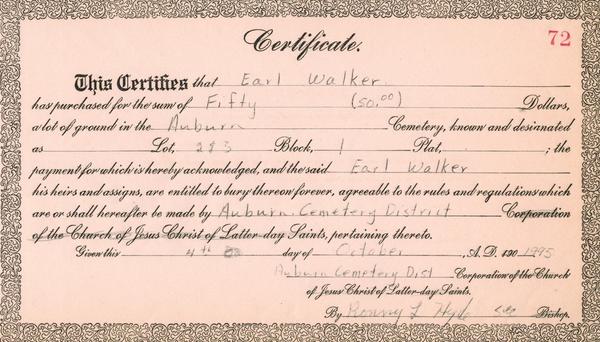 72
Certificate.
This Certifies that Earl Walker
has purchased for the sum of Fifty (50.00) Dollars,
a lot of ground in the Auburn Cemetery, known and desianated
as Lot, 2 & 3 Block, 1 Plat, ; the
payment for which is hereby acknowledged, and the said Earl Walker
his heirs and assigns, are entitled to bury thereon forever, agreeable to the rules and regulations which
are or shall hereafter be made by Auburn Cemetery District Corporation
of the Church of Jesus Christ of Latter-day Saints, pertaining thereto.
Given this 4th day of October , A.D. 190 1995
Auburn Cemetery Dist Corporation of the Church
of Jesus Christ of Latter-day Saints.
By Ronny L Hyde Bishop.